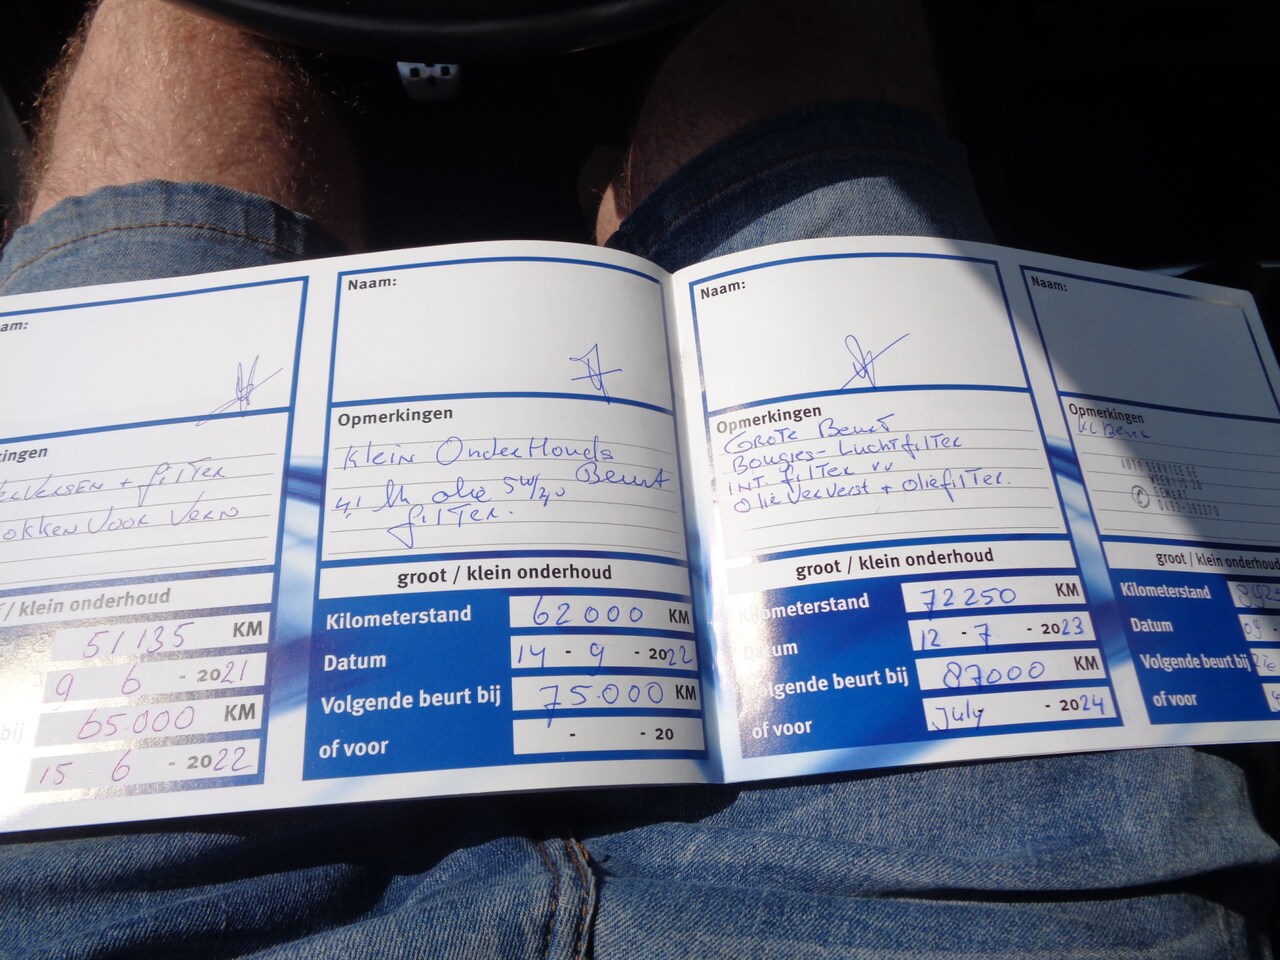 am:
ingen
+ filter
VOOR
/ klein onderhoud
51135 KM
9 6 - 2021
bij 65.000 KM
15 6 - 2022
Naam:
Opmerkingen
Klein OnderHouds
Beurt
olie 5W/40
filter.
groot / klein onderhoud
Kilometerstand 62000 KM
Datum 14 - 9 - 2022
Volgende beurt bij 75.000 KM
of voor - - 20
Naam:
Opmerkingen
GROTE Beurt
Bougies - Luchtfilter
INT. filter vv
olie ververst + oliefilter.
groot / klein onderhoud
Kilometerstand 72250 KM
Datum 12 - 7 - 2023
Volgende beurt bij 87000 KM
of voor July - 2024
Naam:
Opmerkingen
KL Beurt
groot / klein onderhoud
Kilometerstand
Datum 09 -
Volgende beurt bij
of voor